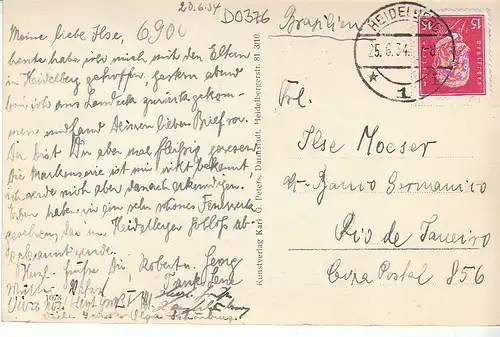 23.6.34
6.900
D0376
Brasilien
Meine liebe Ilse,
heute habe ich mich mit den Eltern
in Heidelberg getroffen, gestern abend
bin ich aus Landeck zurückgekom-
men und fand Deinen lieben Brief vor.
Da bist Du aber mal fleißig gewesen
Die Markenserie ist mir nicht bekannt,
ich werde mich aber danach erkundigen.
Eben haben wir ein sehr schönes Feuerwerk
gesehen das im Heidelberger Schloß ab-
gebrannt wurde.
Herzl. Grüße Dir, Robert u. Georg
Mutti Vater Tante Lene
Viele Grüsse Olga
Kunstverlag Karl G. Peters, Darmstadt, Heidelbergerstr. 81 3/10
HEIDELBERG
25.6.34
* 1
15
15
Frl.
Ilse Moeser
Banco Germanico
Rio de Janeiro
Caixa Postal 856